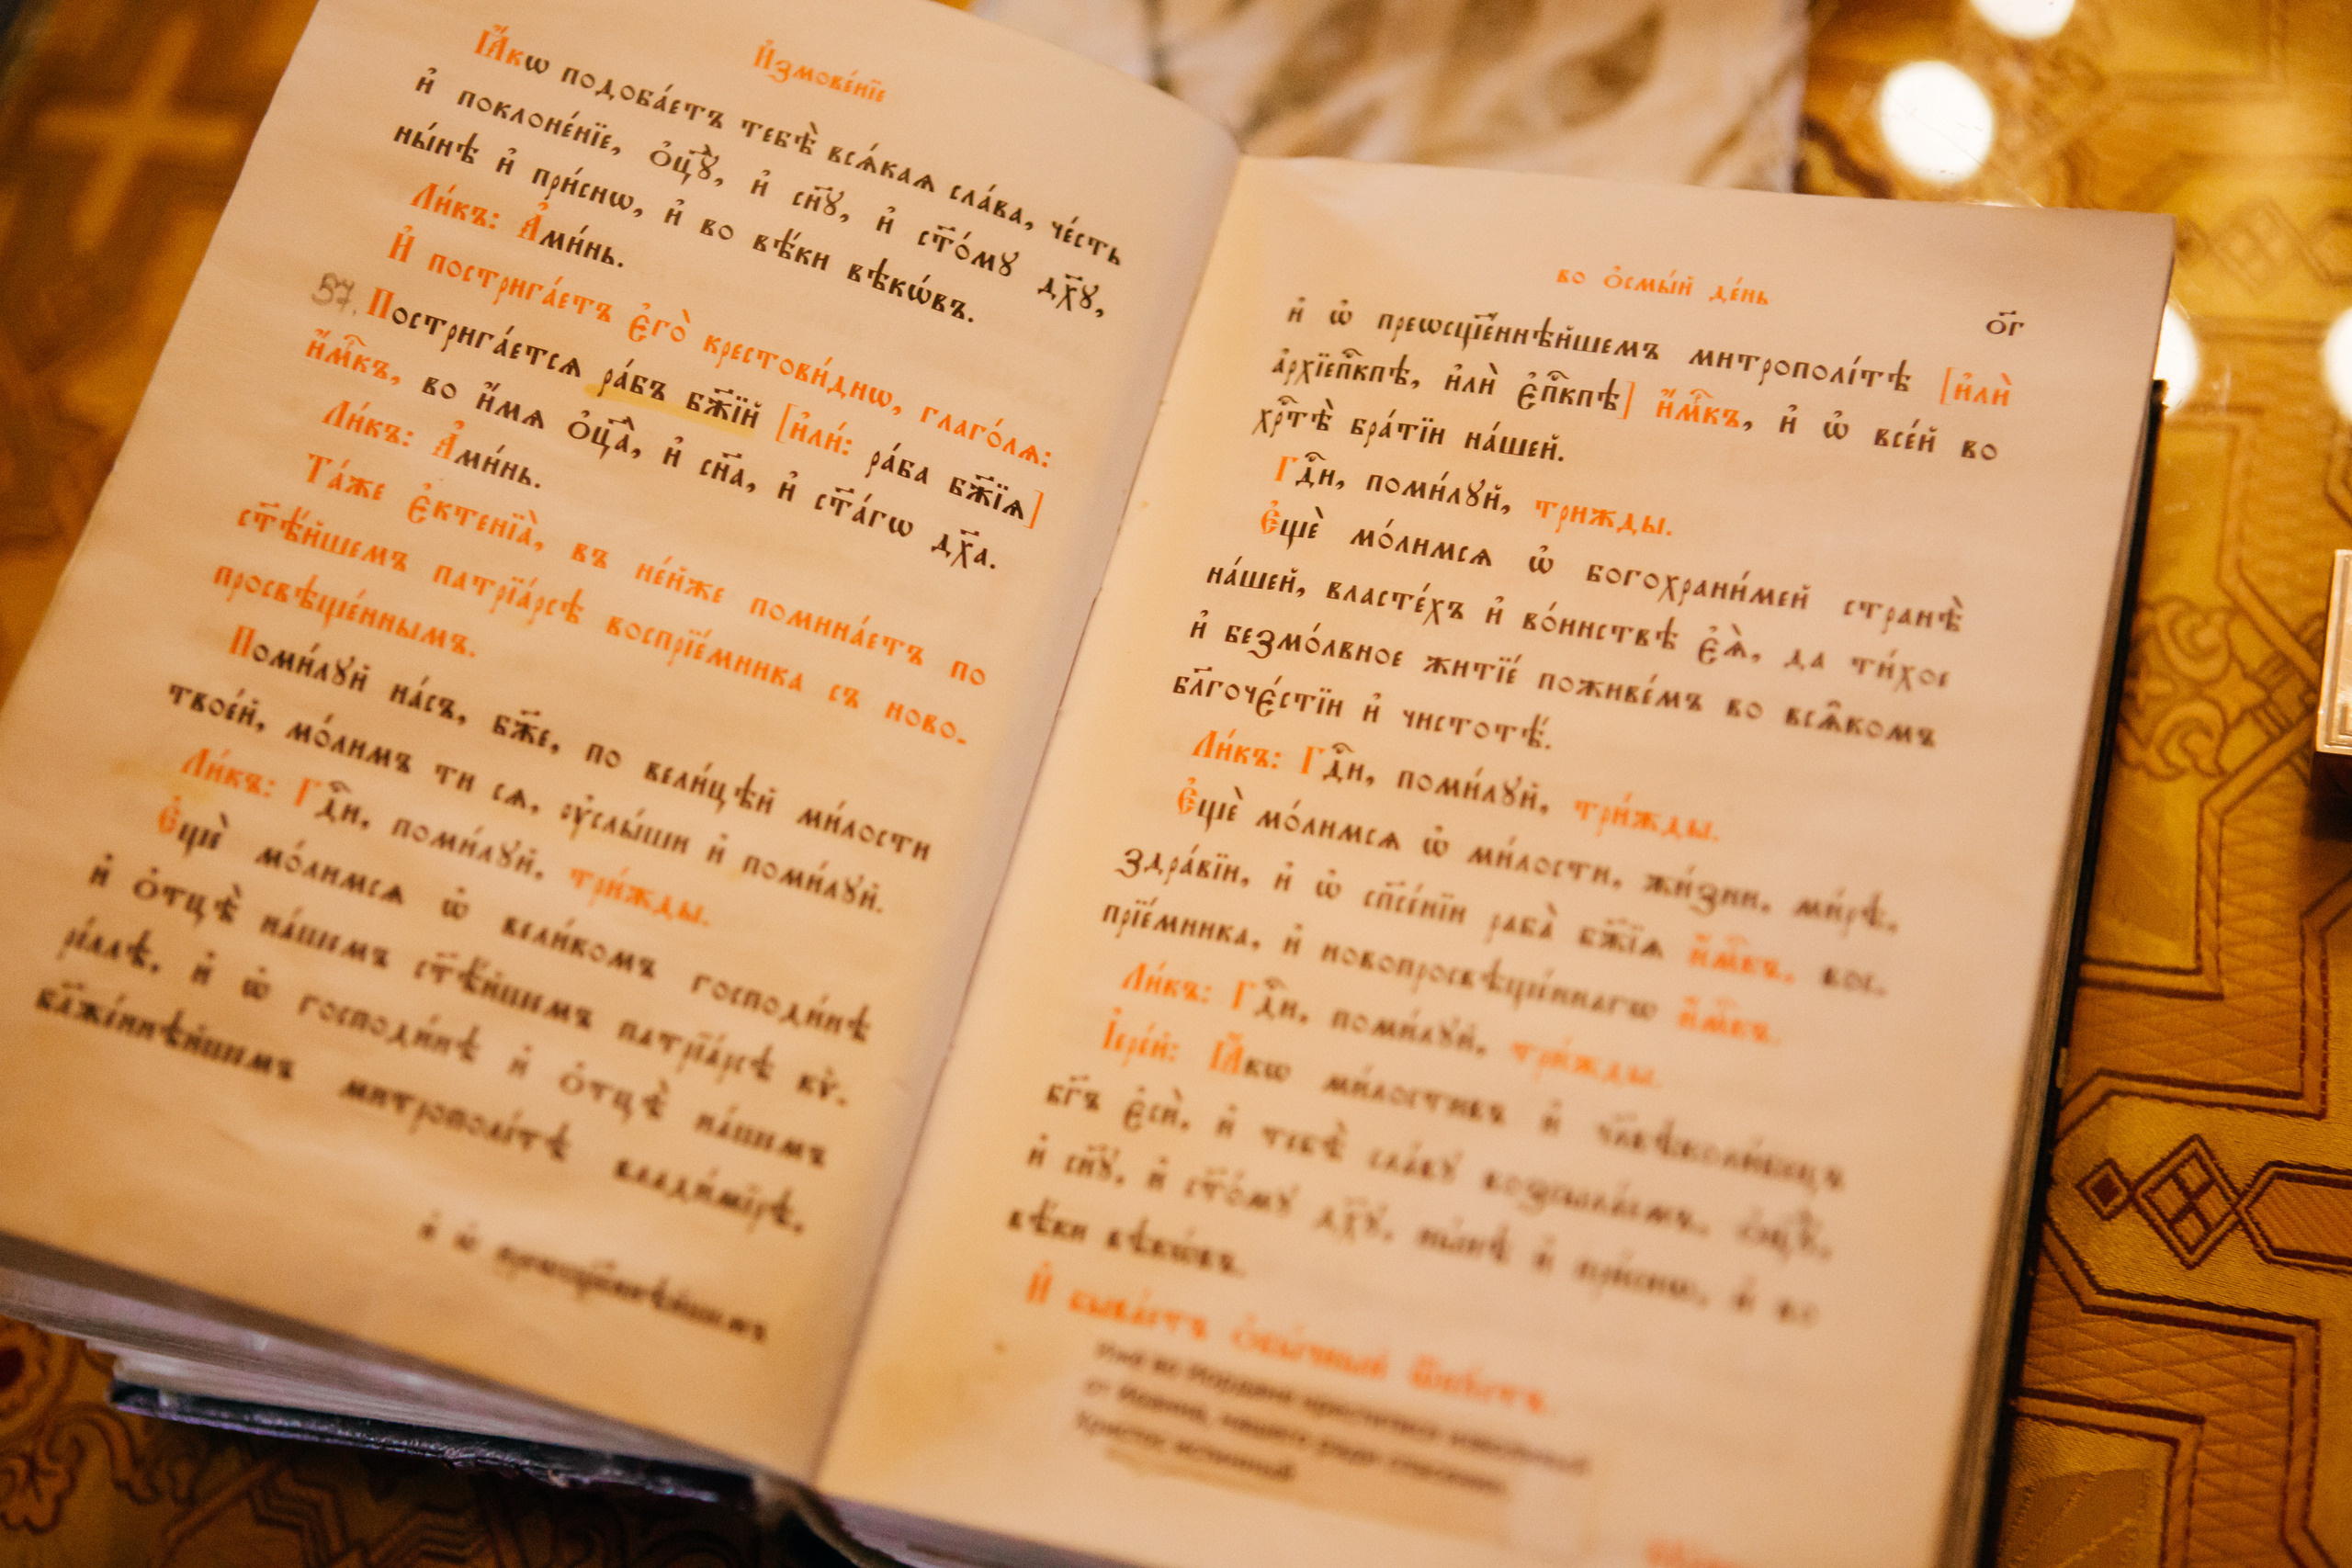 И҆змове́нїе
Ꙗ҆́кѡ подоба́етъ тебѣ̀ всѧ́каѧ сла́ва, че́сть
и҆ поклоне́нїе, ѻ҆ц҃ꙋ̀, и҆ сн҃ꙋ, и҆ ст҃о́мꙋ дх҃ꙋ,
ны́нѣ и҆ при́снѡ, и҆ во вѣ́ки вѣкѡ́въ.
Ли́къ: А҆ми́нь.
И҆ пострига́етъ є҆го̀ крестови́днѡ, глаго́лѧ:
57. Пострига́етсѧ ра́бъ бж҃їй [и҆лѝ: ра́ба бж҃їѧ]
и҆́м҃къ, во и҆́мѧ ѻ҆ц҃а̀, и҆ сн҃а, и҆ ст҃а́гѡ дх҃а.
Ли́къ: А҆ми́нь.
Та́же є҆ктенїа̀, въ не́йже помина́етъ по
ст҃ѣ́йшемъ патрїа́рсѣ воспрїе́мника съ ново-
просвѣще́ннымъ.
Поми́лꙋй на́съ, бж҃е, по вели́цѣй ми́лости
твое́й, мо́лимъ ти сѧ, ᲂу҆слы́ши и҆ поми́лꙋй.
Ли́къ: Гдⷭ҇и, поми́лꙋй, три́жды.
Є҆щѐ мо́лимсѧ ѡ҆ вели́комъ господи́нѣ
и҆ ѻ҆тцѣ̀ на́шемъ ст҃ѣ́йшемъ патрїа́рсѣ кѷ-
рі́ллѣ, и҆ ѡ҆ господи́нѣ и҆ ѻ҆тцѣ̀ на́шемъ
бл҃же́ннѣйшемъ митрополі́тѣ влади́мїрѣ,
и҆ ѡ҆ преѡсщ҃е́ннѣйшемъ
во ѻ҆смы́й де́нь
ѻ҃г
и҆ ѡ҆ преѡсщ҃е́ннѣйшемъ митрополі́тѣ [и҆лѝ
а҆рхїепⷭ҇кпѣ, и҆лѝ є҆пⷭ҇кпѣ] и҆́м҃къ, и҆ ѡ҆ все́й во
хрⷭ҇тѣ̀ бра́тїи на́шей.
Гдⷭ҇и, поми́лꙋй, трижды.
Є҆щѐ мо́лимсѧ ѡ҆ богохрани́мей странѣ̀
на́шей, власте́хъ и҆ во́инствѣ є҆ѧ̀, да ти́хое
и҆ безмо́лвное житїе́ поживе́мъ во всѧ́комъ
бл҃гоче́стїи и҆ чистотѣ́.
Ли́къ: Гдⷭ҇и, поми́лꙋй, три́жды.
Є҆щѐ мо́лимсѧ ѡ҆ ми́лости, жи́зни, ми́рѣ,
здра́вїи, и҆ ѡ҆ сп҃се́нїи раба̀ бж҃їѧ и҆́м҃къ, вос-
прїе́мника, и҆ новопросвѣще́ннагѡ и҆́м҃къ.
Ли́къ: Гдⷭ҇и, поми́лꙋй, три́жды.
І҆ере́й: Ꙗ҆́кѡ ми́лостивъ и҆ чл҃вѣколю́бецъ
бг҃ъ є҆сѝ, и҆ тебѣ̀ сла́вꙋ возсыла́емъ, ѻ҆ц҃ꙋ̀,
и҆ сн҃ꙋ, и҆ ст҃о́мꙋ дх҃ꙋ, ны́нѣ и҆ при́снѡ, и҆ во
вѣ́ки вѣкѡ́въ.
И҆ быва́етъ ѻ҆бы́чный ѿпꙋ́стъ.
Иже во Иордане креститися изволивый
от Иоанна, нашего ради спасения,
Христос истинный